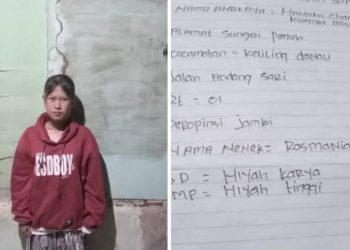 ESDBOY
NAMA ANAKNYA = Hanako
ALAMAT sungai penuh
kecamatan = keliling danau
Jalan Andang sari
Rt = 01
Peropinsi jambi
NAMA NENEK = Rosmania
SD = Hiyah karya
MP = Hiyah tinggi